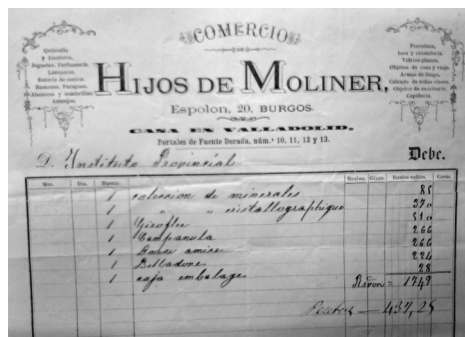 COMERCIO
DE
Quincalla
y bisutería,
Juguetes, Perfumería,
Lámparas,
Batería de cocina,
Bastones, Paraguas,
Abanicos y sombrillas,
Anteojos.
Porcelana,
loza y cristalería.
Objetos de caza y viaje,
Armas de fuego,
Calzado de todas clases,
Objetos de escritorio,
Cepillería.
HIJOS DE MOLINER,
Espolon, 20, BURGOS.
CASA EN VALLADOLID,
Portales de Fuente Dorada, núms. 10, 11, 12 y 13.
D. Instituto Provincial
Debe.
Mes. Dia. Reales vellon. Cénts.
1 coleccion de minerales 85
1 " " cristallographique 370
1 Giroflée 510
1 Campanula 266
1 266
1 Belladone 224
1 caja embalage 28
Rvon = 1749
Pesetas — 437,25